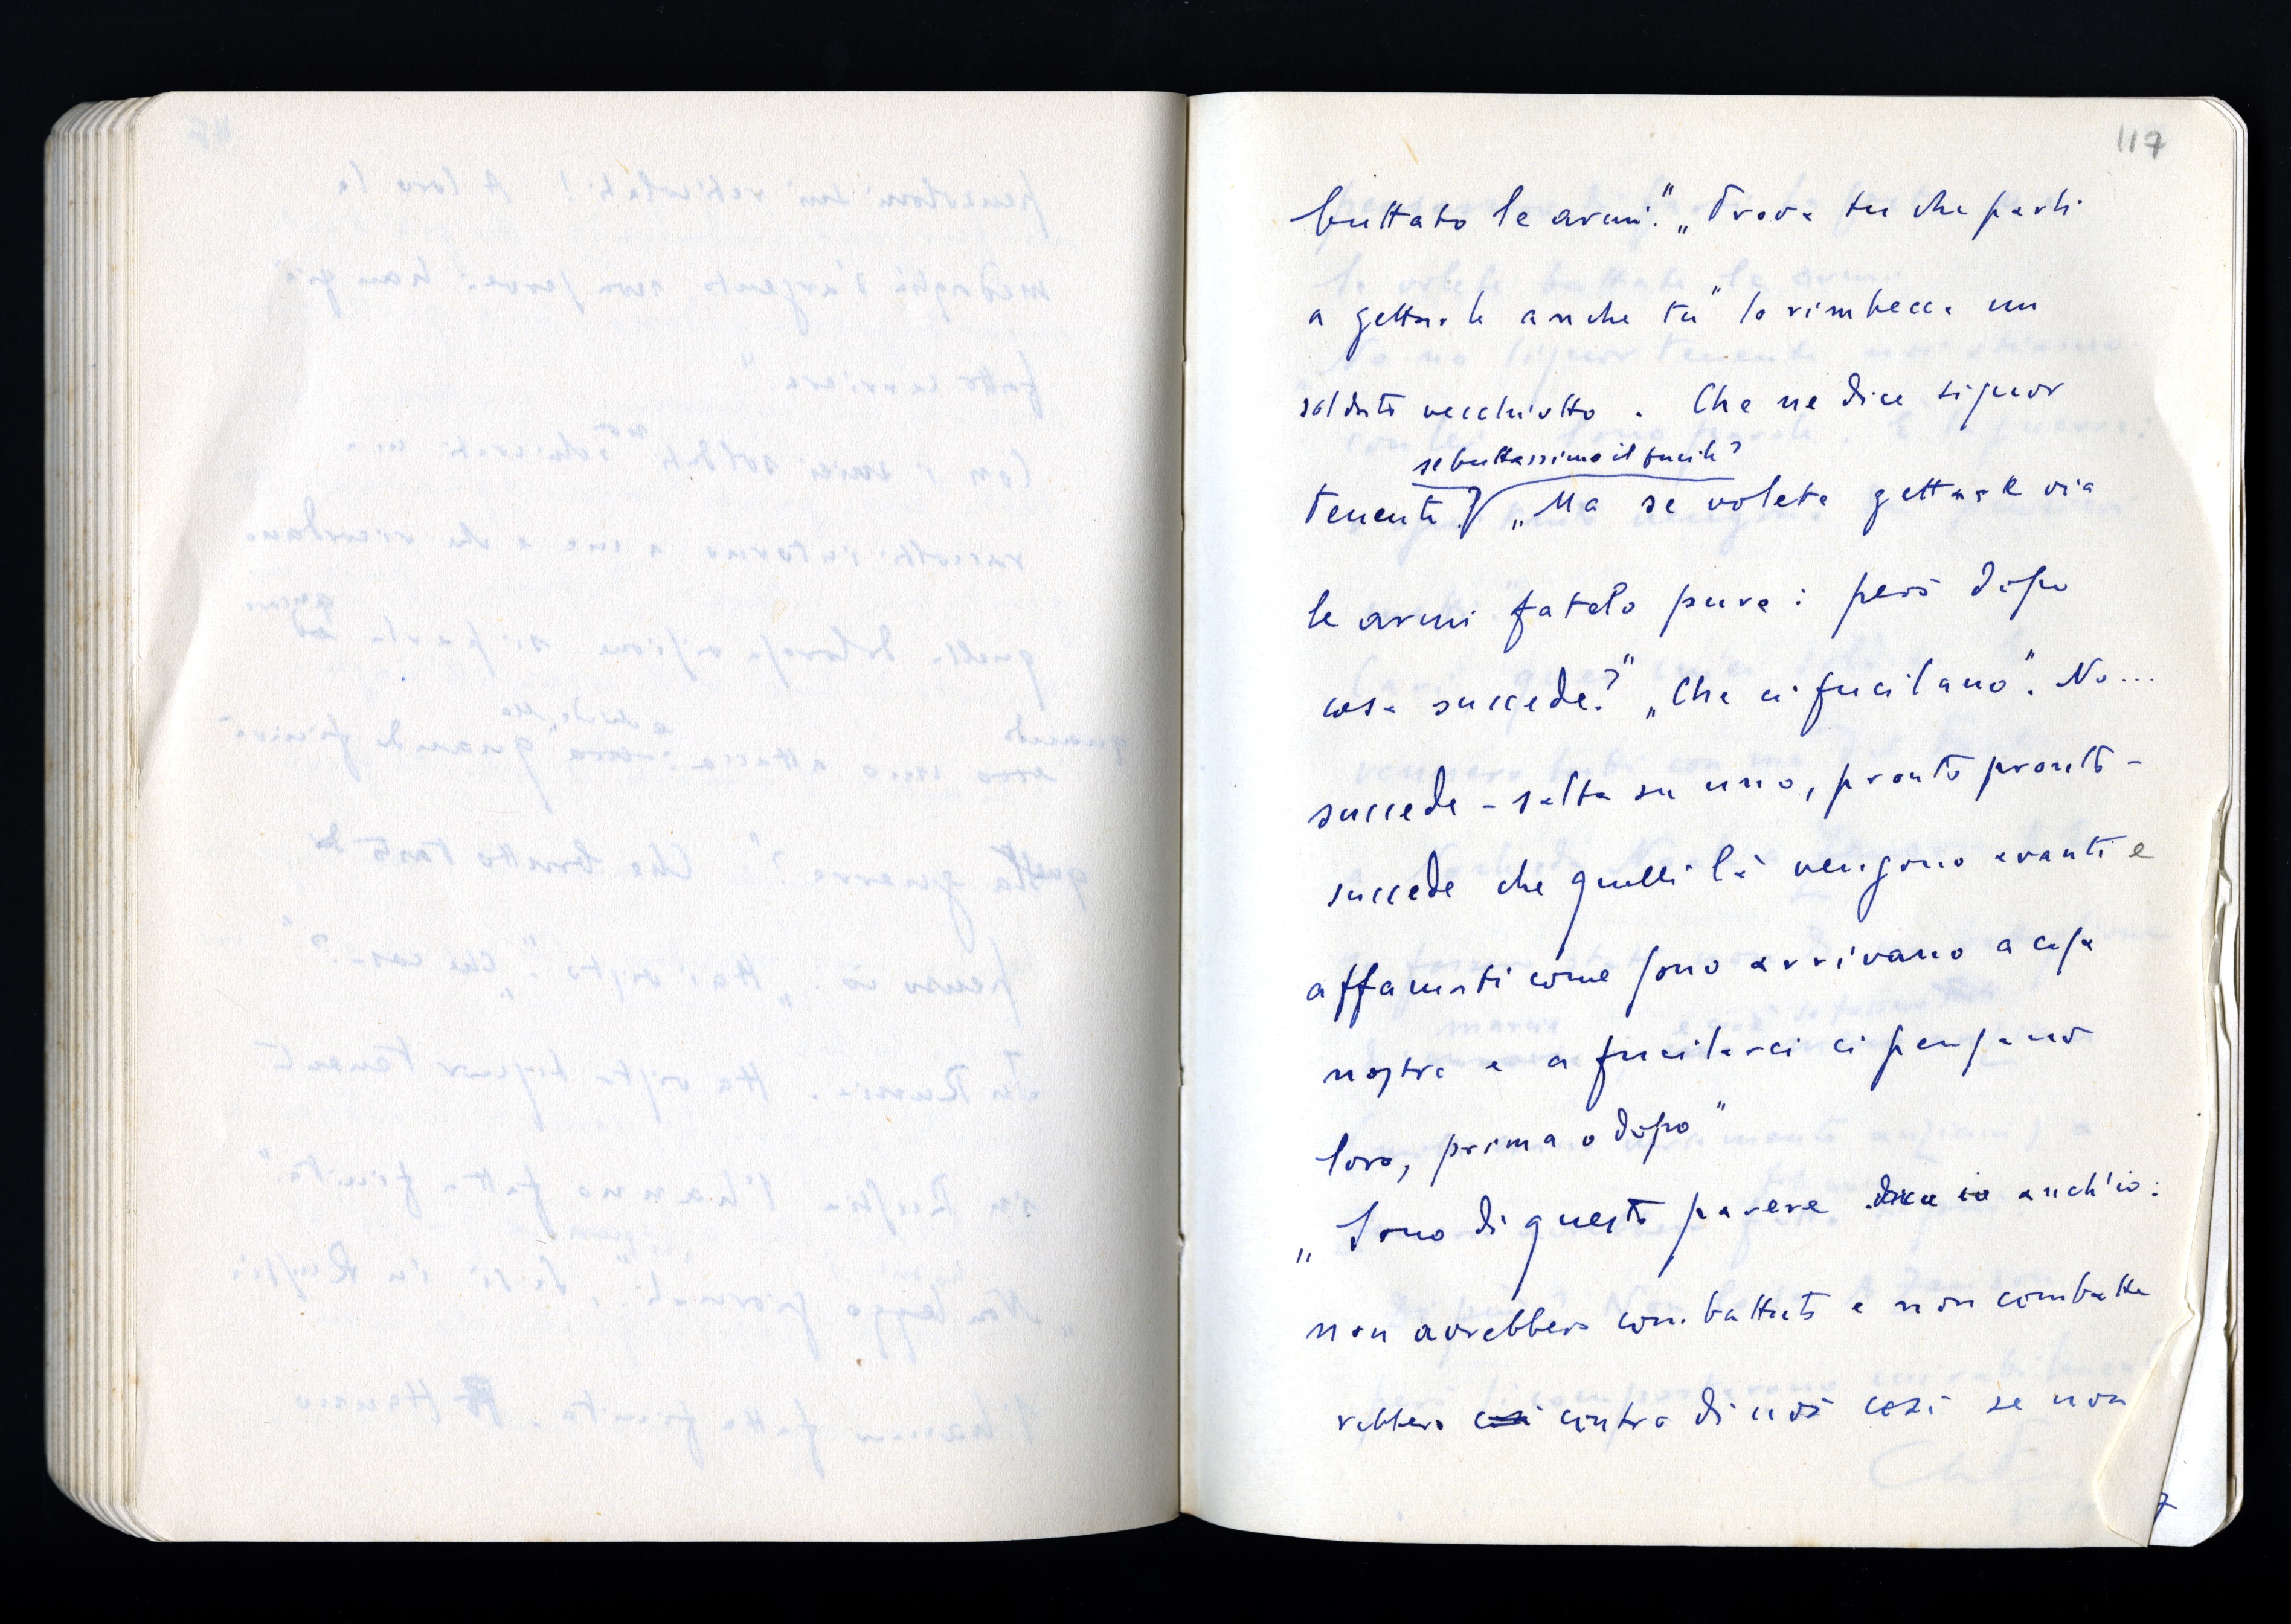 117
buttato le armi". „Prova tu che parli
a gettarle anche tu" lo rimbecca un
soldato vecchiotto. Che ne dice signor
se buttassimo il fucile?
tenente? „Ma se volete gettare via
le armi fatelo pure: però dopo
cosa succede?" „Che ci fucilano". No...
succede - salta su uno, pronto pronto -
succede che quelli là vengono avanti e
affamati come sono arrivano a casa
nostra e a fucilarci ci pensano
loro, prima o dopo"
„Sono di questo parere anch'io:
non avrebbero combattuto e non combatte
rebbero contro di noi così se non